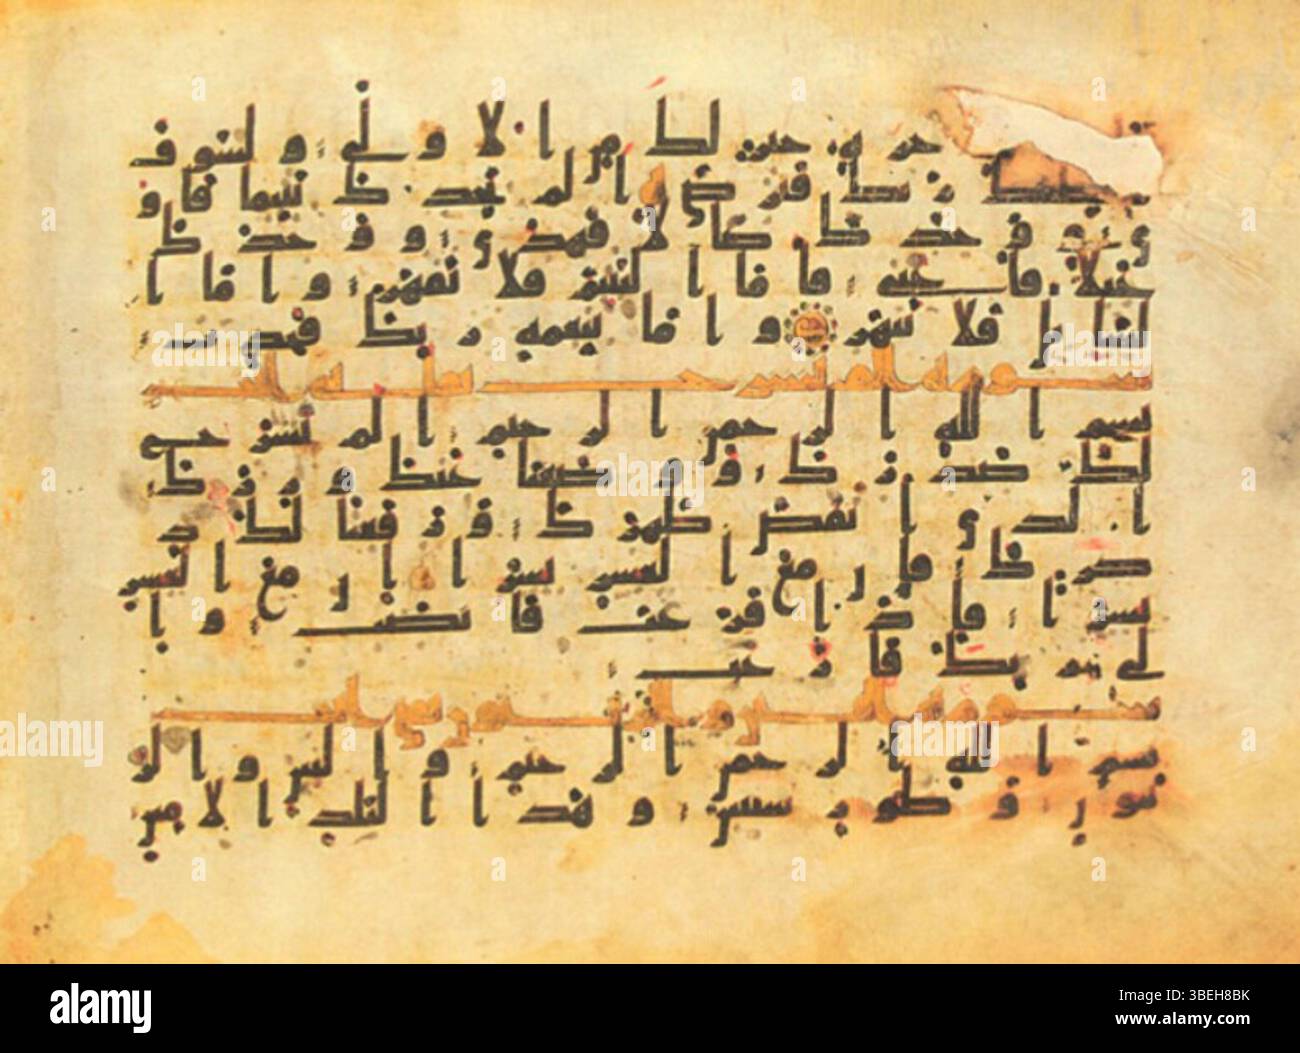 خره خير لك من الاولى ولسوف
يعطيك ربك فترضى الم يجدك يتيما فاو
ى ووجدك ضالا فهدى ووجدك عا
ئلا فاغنى فاما اليتيم فلا تقهر واما ا
لسائل فلا تنهر واما بنعمه ربك فحدث
سوره الم نشرح
بسم الله الرحمن الرحيم الم نشرح
لك صدرك ووضعنا عنك وزرك
الذى انقض ظهرك ورفعنا لك ذ
كرك فان مع العسر يسرا ان مع العسر
يسرا فاذا فرغت فانصب وا
لى ربك فارغب
سوره
بسم الله الرحمن الرحيم والتين والز
يتون وطور سينين وهذا البلد الامين
alamy
Image ID: 3BEH8BK
www.alamy.com